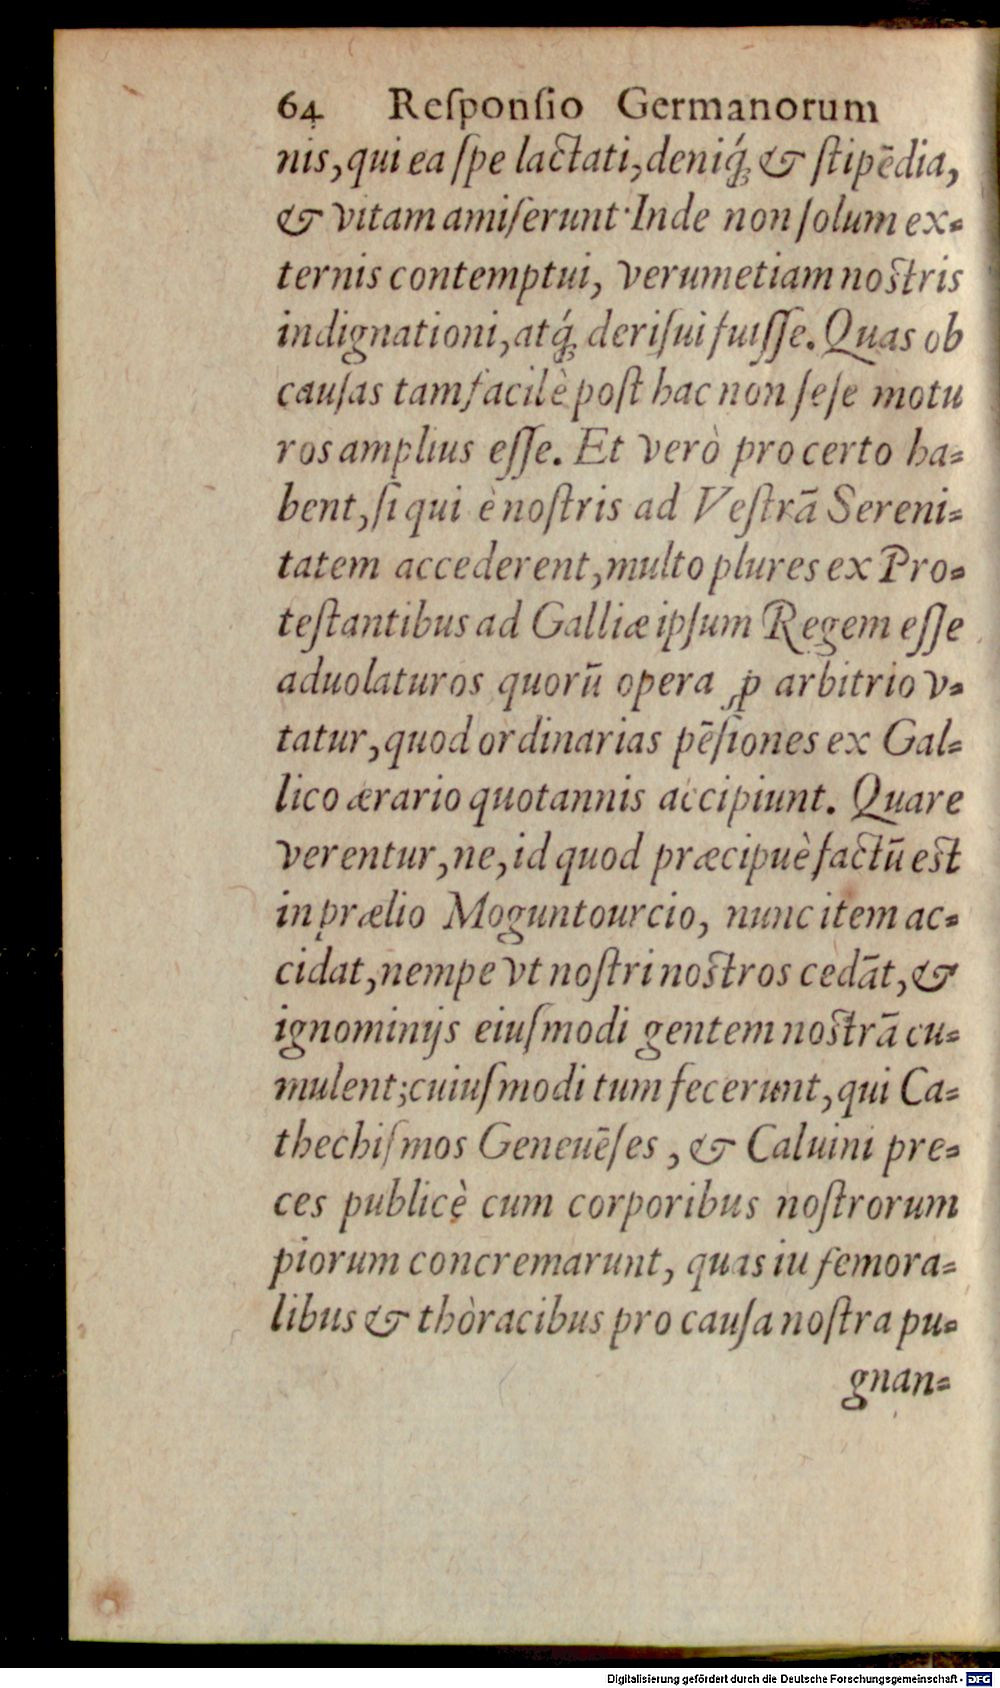 64 Reſponſio Germanorum
nis, qui ea ſpe lactati, deniq́; & ſtipēdia,
& vitam amiſerunt· Inde non ſolum ex-
ternis contemptui, verumetiam noſtris
indignationi, atq́; deriſui fuiſſe. Quas ob
cauſas tam facilè poſt hac non ſeſe motu
ros amplius eſſe. Et verò pro certo ha-
bent, ſi qui è noſtris ad Veſtrā Sereni-
tatem accederent, multo plures ex Pro-
teſtantibus ad Galliæ ipſum Regem eſſe
aduolaturos quorū opera ꝓ arbitrio v-
tatur, quod ordinarias pēſiones ex Gal-
lico ærario quotannis accipiunt. Quare
verentur, ne, id quod præcipuè factū est
in prælio Moguntourcio, nunc item ac-
cidat, nempe vt noſtri noſtros cedāt, &
ignominijs eiuſmodi gentem noſtrā cu-
mulent; cuiuſmodi tum fecerunt, qui Ca-
thechiſmos Geneuēſes, & Caluini pre-
ces publicè cum corporibus noſtrorum
piorum concremarunt, quas iu femora-
libus & thòracibus pro cauſa noſtra pu-
gnan-
Digitalisierung gefördert durch die Deutsche Forschungsgemeinschaft - DFG